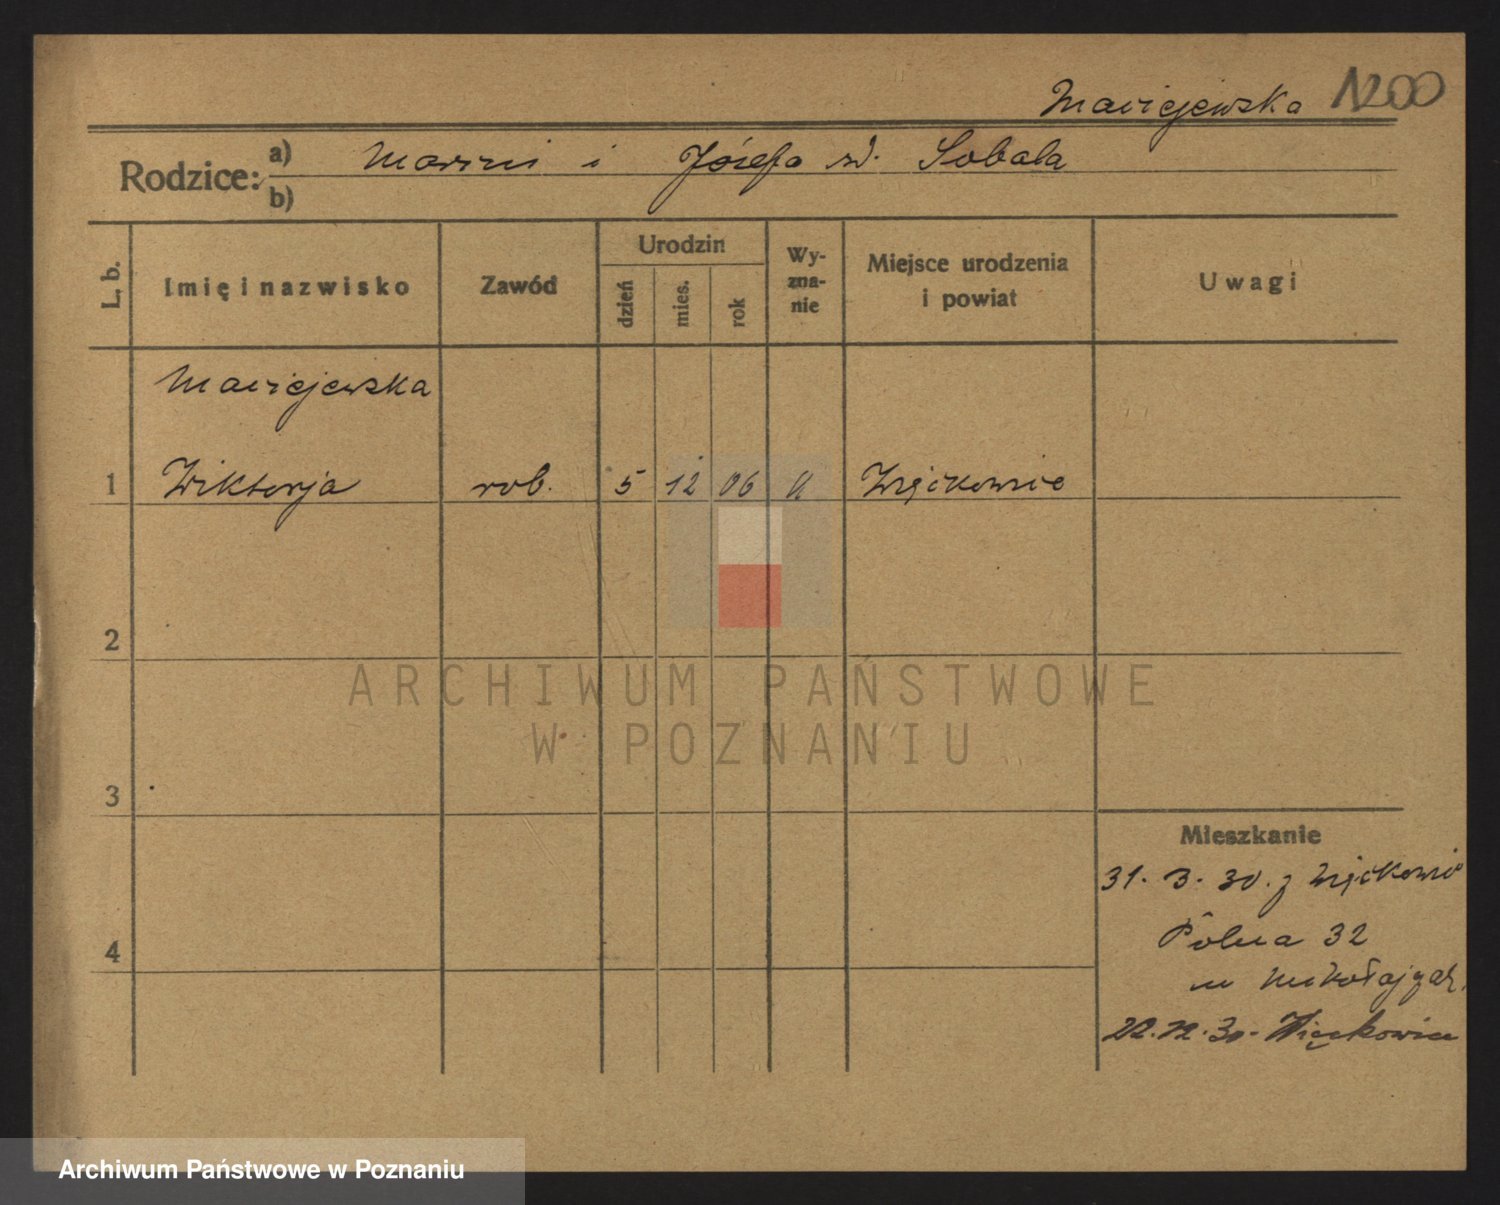 Maciejewska 1200
Rodzice: a) Marcin i Józefa zd. Sobala
b)
L. b. Imię i nazwisko Zawód Urodzin dzień mies. rok Wyznanie Miejsce urodzenia i powiat Uwagi
Maciejewska
1 Wiktorja rob. 5 12 06 k Więckowice
2
ARCHIWUM PAŃSTWOWE
W POZNANIU
3
Mieszkanie
31. 3. 30. z Więckowic
Polna 32
4
u Mikołajczak
22.12.30. Więckowice
Archiwum Państwowe w Poznaniu